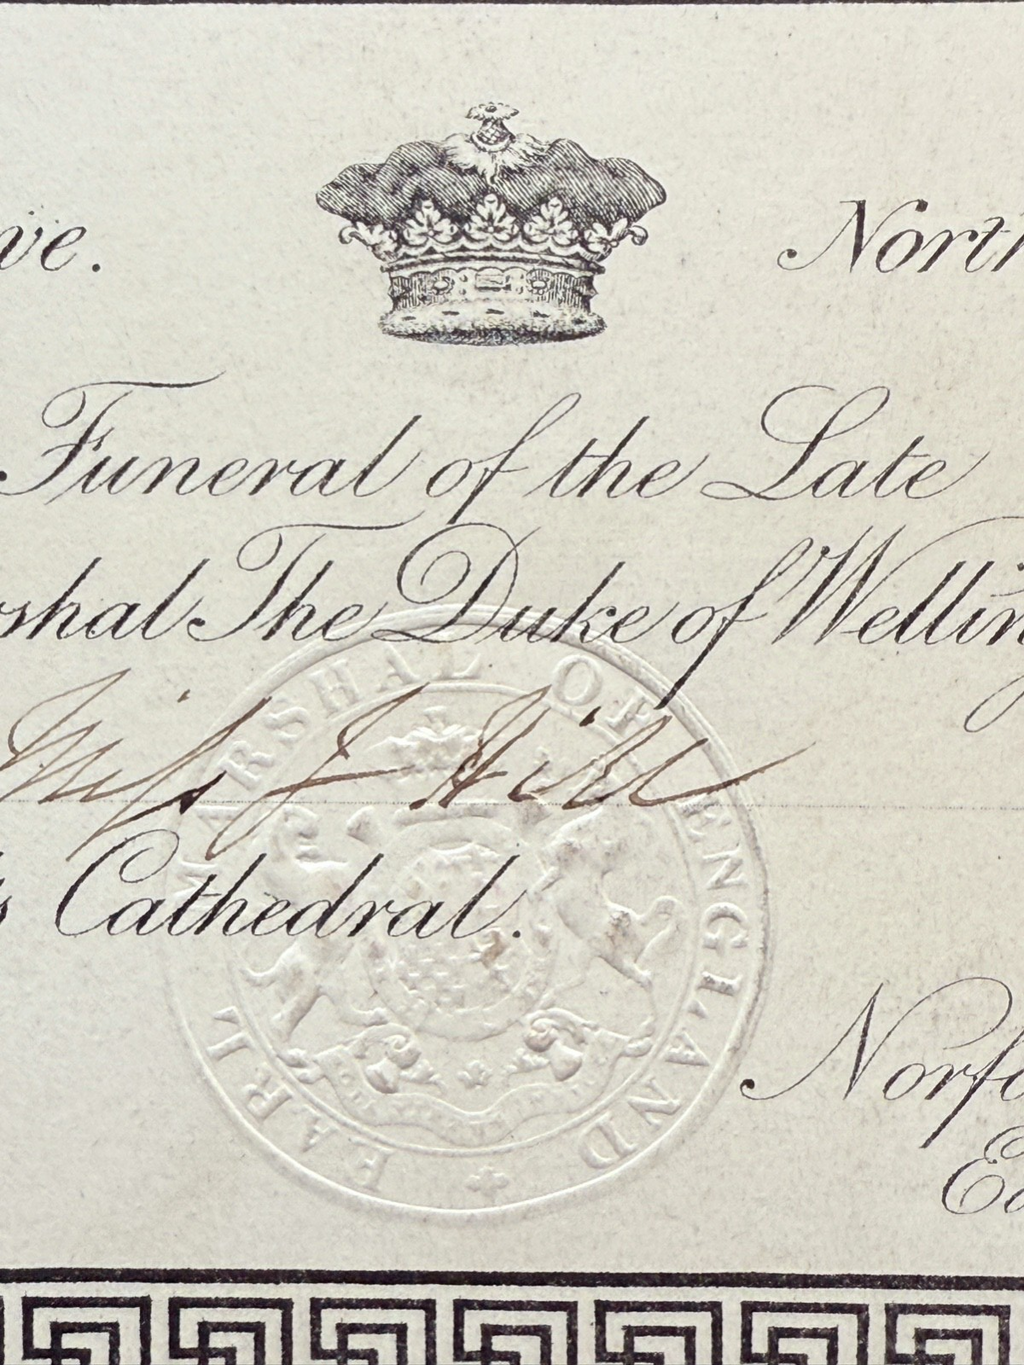 ve. North
Funeral of the Late
rshal The Duke of Welling
Miss J Hill
s Cathedral.
EARL MARSHAL OF ENGLAND
Norfo
Ea